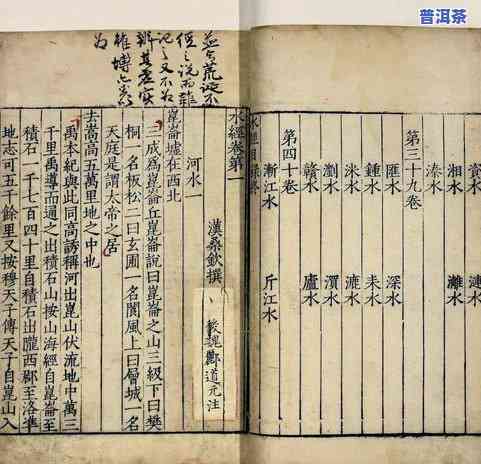 普洱茶
資水 漣水
湘水 灕水
溱水
第三十九卷
匯水 深水
鍾水 耒水
洣水 漉水
瀏水
贛水 廬水
第四十卷
漸江水 斤江水
水經目録終
荒誕不
經之説而雖
記之又不為
辨其虛實
雖博
為
水經卷第一
漢桑欽撰 後魏酈道元注
河水一
崑崙墟在西北
三成為崑崙丘崑崙說曰崑崙之山三級下曰樊
桐一名板松二曰玄圃一名閬風上曰層城一名
天庭是謂太帝之居
去嵩高五萬里地之中也
禹本紀與此同高誘稱河出崑山伏流地中萬三
千里禹導而通之出積石山按山海經自崑崙至
積石一千七百四十里自積石出隴西郡至洛準
地志可五千餘里又按穆天子傳天子自崑山入